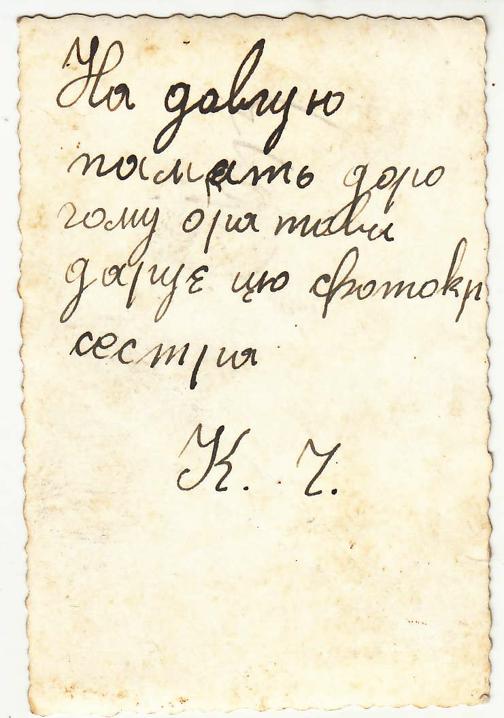 На довгую
памать доро
гому братови
дарує цю фотокр
сестра
К. Ч.